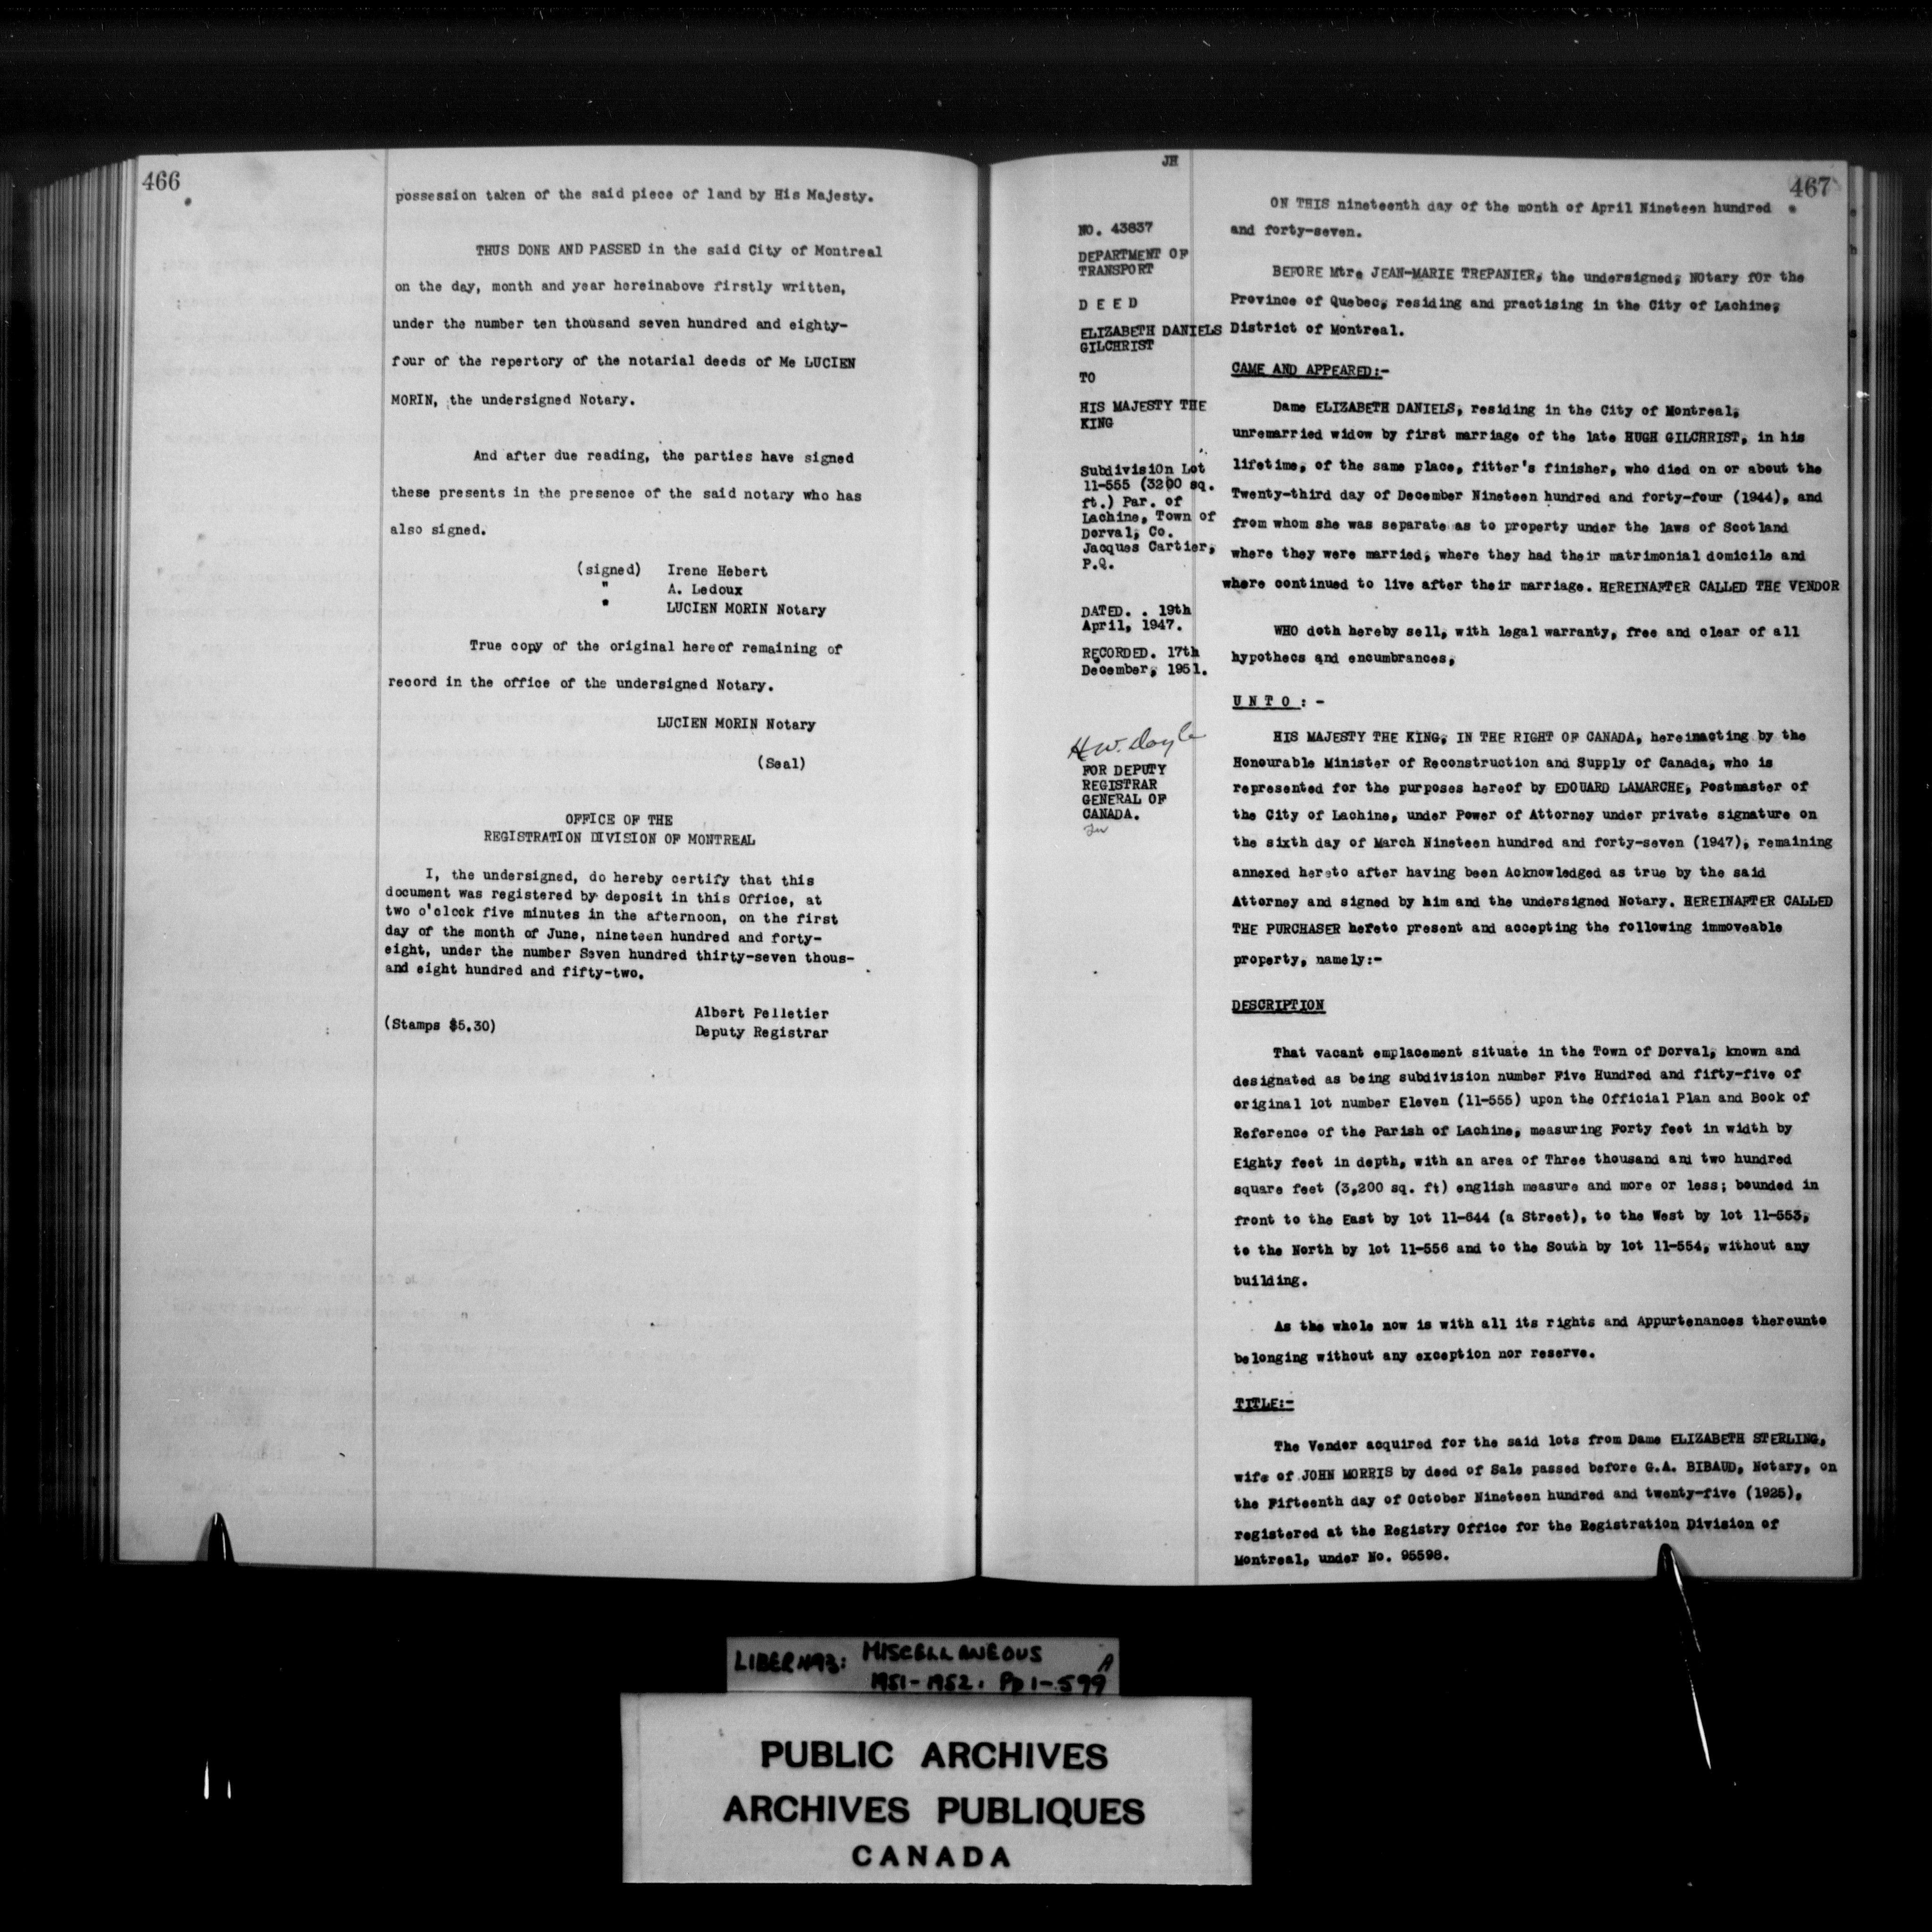 466
possession taken of the said piece of land by His Majesty.
THUS DONE AND PASSED in the said City of Montreal
on the day, month and year hereinabove firstly written,
under the number ten thousand seven hundred and eighty-
four of the repertory of the notarial deeds of Me LUCIEN
MORIN, the undersigned Notary.
And after due reading, the parties have signed
these presents in the presence of the said notary who has
also signed.
(signed) Irene Hebert
" A. Ledoux
" LUCIEN MORIN Notary
True copy of the original hereof remaining of
record in the office of the undersigned Notary.
LUCIEN MORIN Notary
(Seal)
OFFICE OF THE
REGISTRATION DIVISION OF MONTREAL
I, the undersigned, do hereby certify that this
document was registered by deposit in this Office, at
two o'clock five minutes in the afternoon, on the first
day of the month of June, nineteen hundred and forty-
eight, under the number Seven hundred thirty-seven thous-
and eight hundred and fifty-two.
Albert Pelletier
(Stamps $5.30)
Deputy Registrar
JH
467
NO. 43837
DEPARTMENT OF
TRANSPORT
D E E D
ELIZABETH DANIELS
GILCHRIST
TO
HIS MAJESTY THE
KING
Subdivision Lot
11-555 (3200 sq.
ft.) Par. of
Lachine, Town of
Dorval, Co.
Jacques Cartier,
P.Q.
DATED. . 19th
April, 1947.
RECORDED. 17th
December, 1951.
H W. Doyle
FOR DEPUTY
REGISTRAR
GENERAL OF
CANADA.
ON THIS nineteenth day of the month of April Nineteen hundred
and forty-seven.
BEFORE Mtre JEAN-MARIE TREPANIER, the undersigned, Notary for the
Province of Quebec, residing and practising in the City of Lachine,
District of Montreal.
CAME AND APPEARED:-
Dame ELIZABETH DANIELS, residing in the City of Montreal,
unremarried widow by first marriage of the late HUGH GILCHRIST, in his
lifetime, of the same place, fitter's finisher, who died on or about the
Twenty-third day of December Nineteen hundred and forty-four (1944), and
from whom she was separate as to property under the laws of Scotland
where they were married, where they had their matrimonial domicile and
where continued to live after their marriage. HEREINAFTER CALLED THE VENDOR
WHO doth hereby sell, with legal warranty, free and clear of all
hypothecs and encumbrances,
U N T O : -
HIS MAJESTY THE KING, IN THE RIGHT OF CANADA, hereinacting by the
Honourable Minister of Reconstruction and Supply of Canada, who is
represented for the purposes hereof by EDOUARD LAMARCHE, Postmaster of
the City of Lachine, under Power of Attorney under private signature on
the sixth day of March Nineteen hundred and forty-seven (1947), remaining
annexed hereto after having been Acknowledged as true by the said
Attorney and signed by him and the undersigned Notary. HEREINAFTER CALLED
THE PURCHASER hereto present and accepting the following immoveable
property, namely:-
DESCRIPTION
That vacant emplacement situate in the Town of Dorval, known and
designated as being subdivision number Five Hundred and fifty-five of
original lot number Eleven (11-555) upon the Official Plan and Book of
Reference of the Parish of Lachine, measuring Forty feet in width by
Eighty feet in depth, with an area of Three thousand and two hundred
square feet (3,200 sq. ft) english measure and more or less; bounded in
front to the East by lot 11-644 (a Street), to the West by lot 11-553,
to the North by lot 11-556 and to the South by lot 11-554, without any
building.
As the whole now is with all its rights and Appurtenances thereunto
belonging without any exception nor reserve.
TITLE:-
The Vendor acquired for the said lots from Dame ELIZABETH STERLING,
wife of JOHN MORRIS by deed of Sale passed before G.A. BIBAUD, Notary, on
the Fifteenth day of October Nineteen hundred and twenty-five (1925),
registered at the Registry Office for the Registration Division of
Montreal, under No. 95598.
LIBER 493: MISCELLANEOUS A
1951-1952. Pp 1-599
PUBLIC ARCHIVES
ARCHIVES PUBLIQUES
CANADA